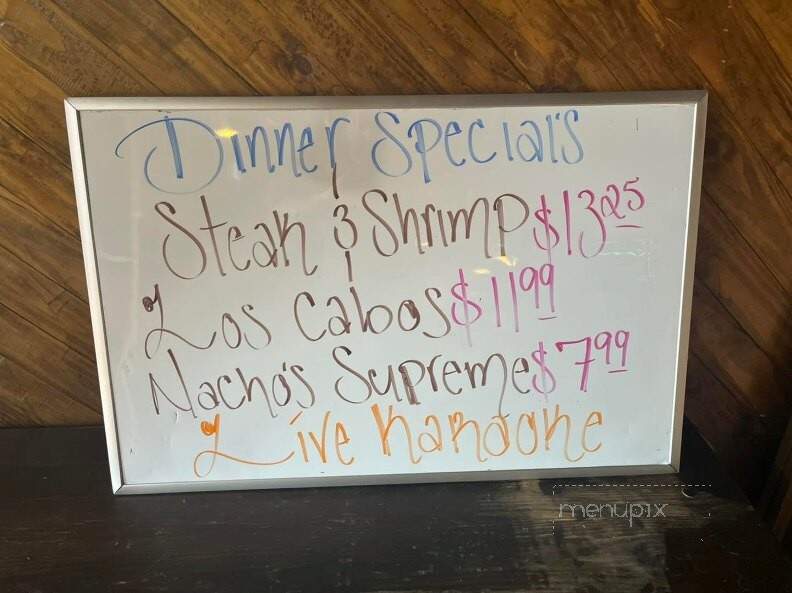 Dinner Special's
Steak & Shrimp $13.25
Los Cabos $11.99
Nacho's Supreme $7.99
Live Karaoke
menupix